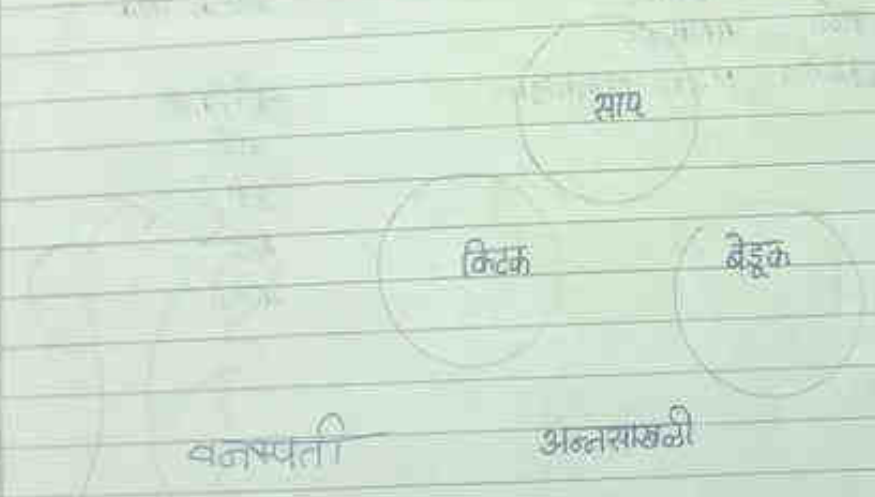 साप
किटक
बेडूक
वनस्पती
अन्नसाखळी